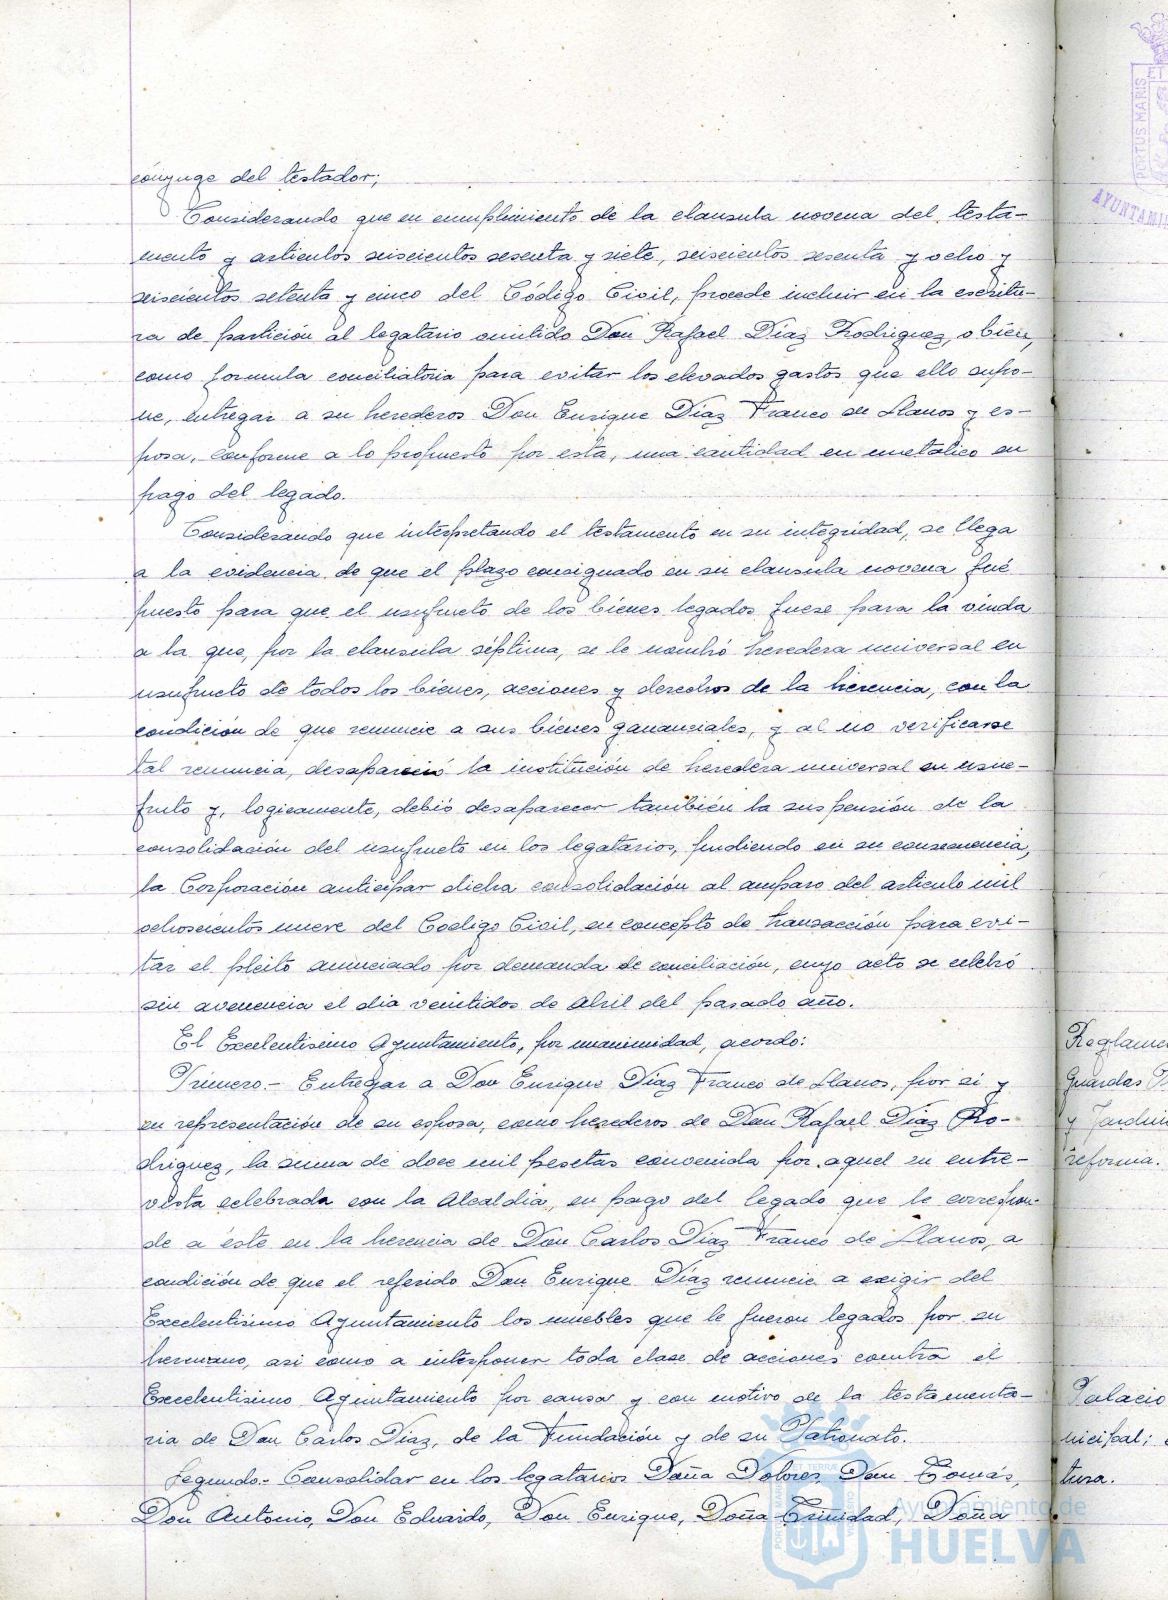 cónyuge del testador;
Considerando que en cumplimiento de la clausula novena del testa-
mento y articulos seiscientos sesenta y siete, seiscientos sesenta y ocho y
seiscientos setenta y cinco del Código Civil, procede incluir en la escritu-
ra de partición al legatario omitido Don Rafael Díaz Rodriguez, o bien,
como formula conciliatoria para evitar los elevados gastos que ello supo-
ne, entregar a su herederos Don Enrique Díaz Franco de Llanos y es-
posa, conforme a lo propuesto por esta, una cantidad en metalico en
pago del legado.
Considerando que interpretando el testamento en su integridad, se llega
a la evidencia de que el plazo consignado en su clausula novena fué
puesto para que el usufructo de los bienes legados fuese para la viuda
a la que, por la clausula séptima, se le nombró heredera universal en
usufructo de todos los bienes, acciones y derechos de la herencia, con la
condición de que renuncie a sus bienes gananciales, y al no verificarse
tal renuncia, desapareció la institución de heredera universal en usu-
fruto y, logicamente, debió desaparecer también la suspensión de la
consolidación del usufructo en los legatarios, pudiendo en su consecuencia,
la Corporación anticipar dicha consolidación al amparo del articulo mil
ochoscientos nueve del Codigo Civil, en concepto de transacción para evi-
tar el pleito anunciado por demanda de conciliación, cuyo acto se celebró
sin avenencia el dia veintidos de Abril del pasado año.
El Excelentisimo Ayuntamiento, por unanimidad, acordo:
Primero.- Entregar a Don Enrique Díaz Franco de Llanos, por si y
en representación de su esposa, como herederos de Don Rafael Díaz Ro-
driguez, la suma de doce mil pesetas convenida por aquel en entre-
vista celebrada con la Alcaldia, en pago del legado que le correspon-
de a éste en la herencia de Don Carlos Díaz Franco de Llanos, a
condición de que el referido Don Enrique Díaz renuncie a exigir del
Excelentisimo Ayuntamiento los muebles que le fueron legados por su
hermano, asi como a interponer toda clase de acciones contra el
Excelentisimo Ayuntamiento por causa y con motivo de la testamenta-
ria de Don Carlos Díaz, de la Fundación y de su Patronato.
Segundo.- Consolidar en los legatarios Doña Dolores, Don Tomás,
Don Antonio, Don Eduardo, Don Enrique, Doña Trinidad, Doña
Reglame
Guardas
y Jardin
reforma.
Palacio
nicipal;
tura.
PORTUS MARIS
ET
AYUNTAMI
Ayuntamiento de
HUELVA